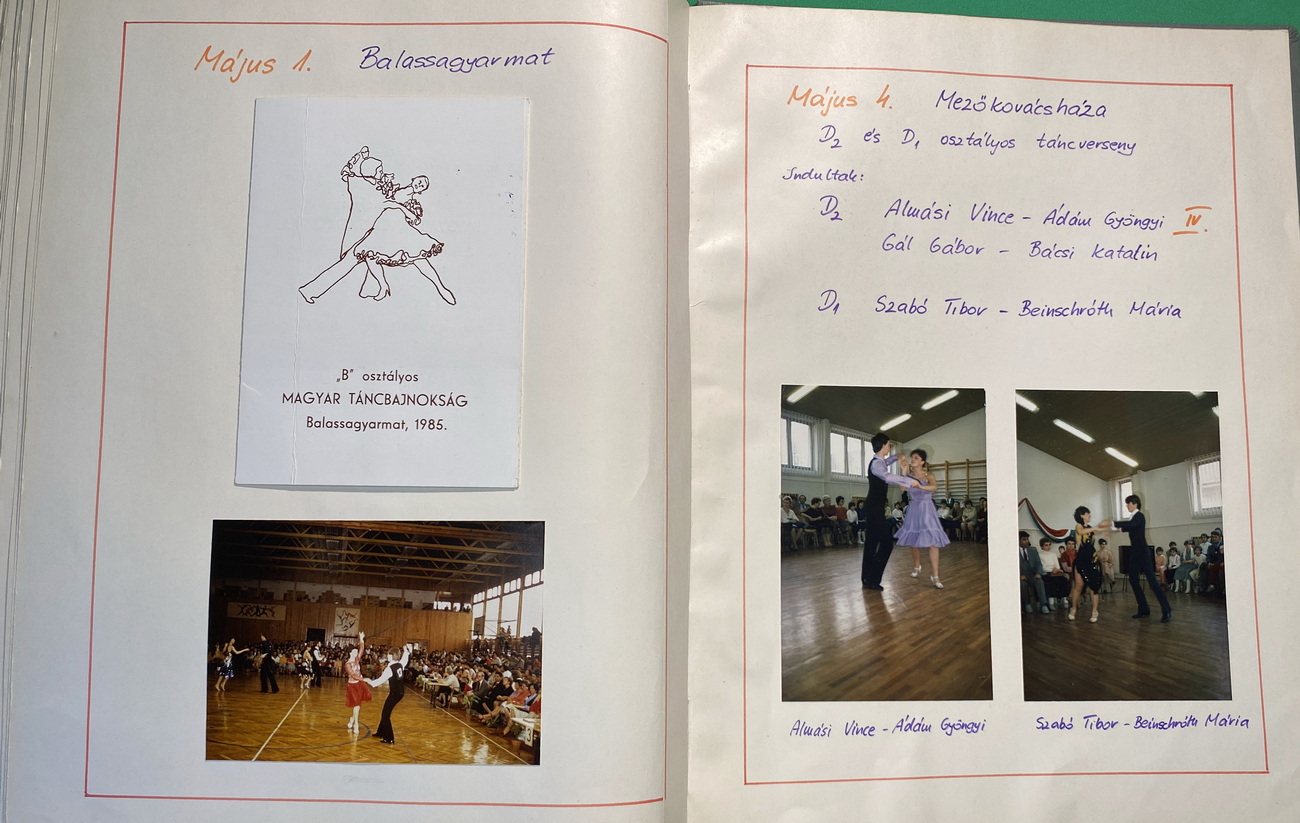 Május 1. Balassagyarmat
„B" osztályos
MAGYAR TÁNCBAJNOKSÁG
Balassagyarmat, 1985.
Május 4. Mezőkovácsháza
D2 és D1 osztályos táncverseny
Indultak:
D2 Almási Vince - Ádám Gyöngyi IV.
Gál Gábor - Bácsi Katalin
D1 Szabó Tibor - Beinschróth Mária
Almási Vince - Ádám Gyöngyi
Szabó Tibor - Beinschróth Mária